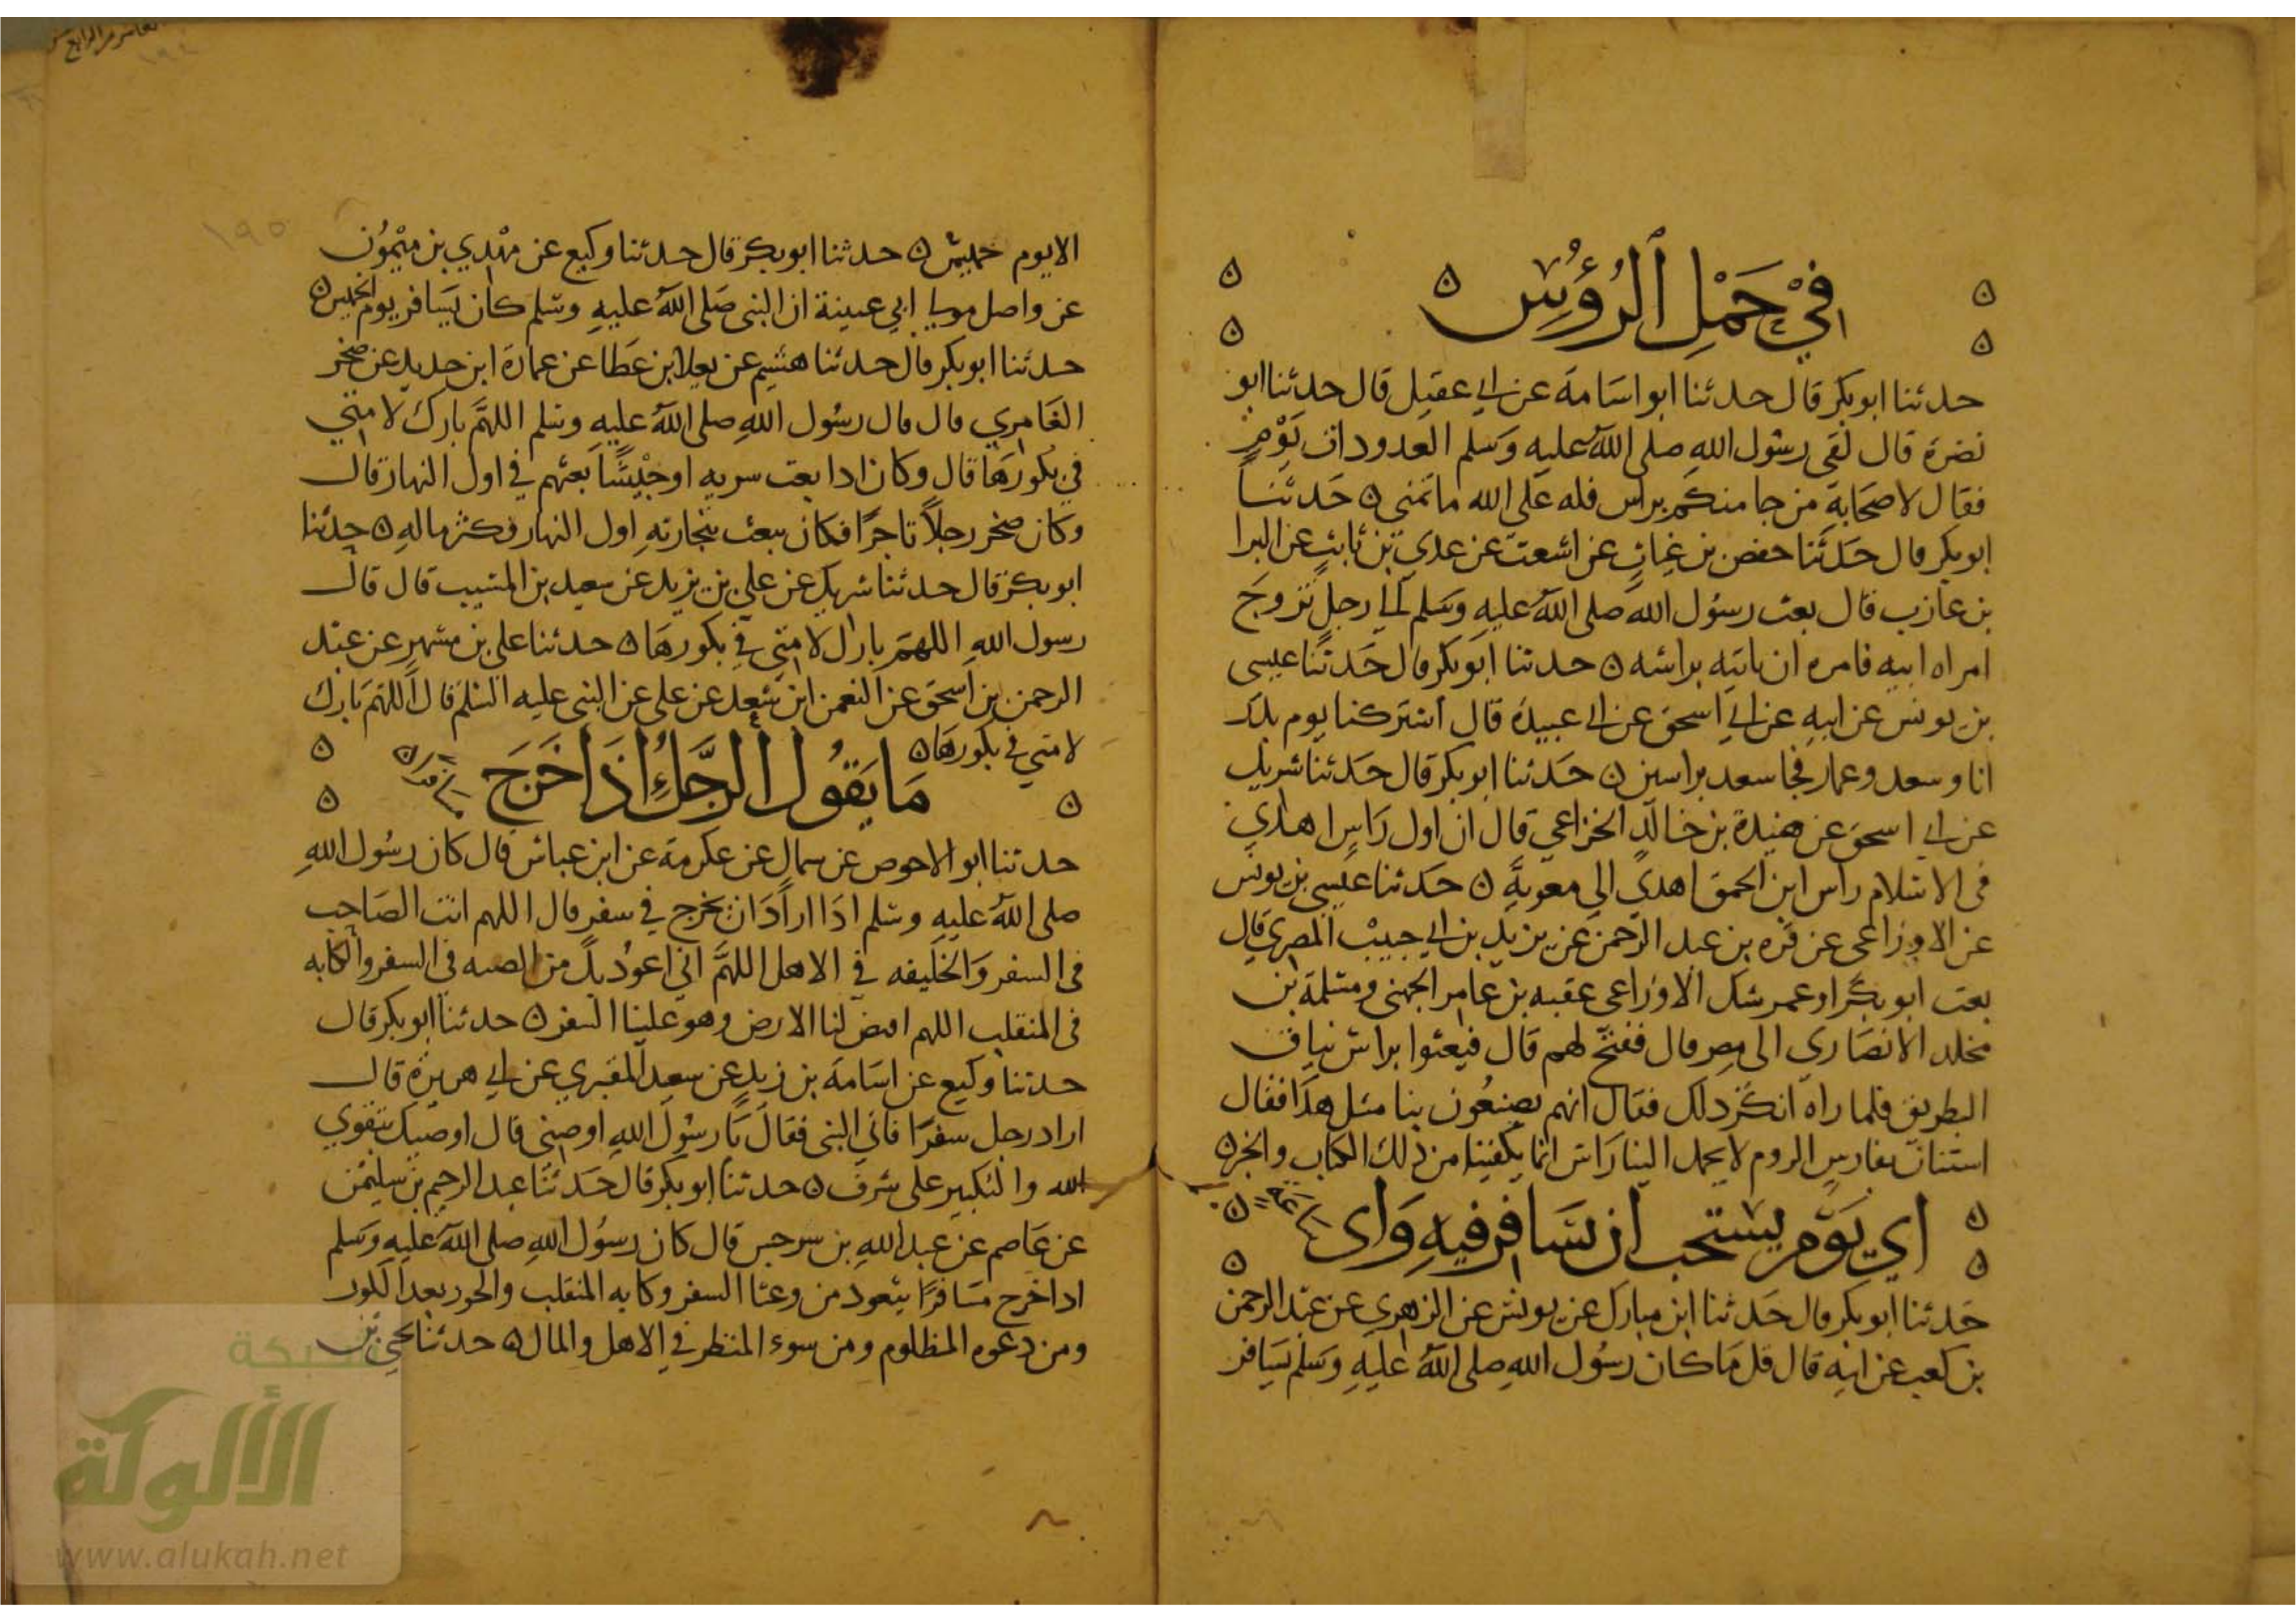 في حَمْلِ ٱلرُؤُسِ
حدثنا ابو بكر قال حدثنا ابو اسَامة عن ابي عقيل قال حدثنا ابو
نضرة قال لقي رسُول الله صلى الله عليه وسَلم العدو ذات يَوْم
فقال لاصحَابه من جا منكم براس فله عَلى الله ما تمنى ه حَدثنَا
ابو بكر قال حَدثَنا حفص بن غياث عن اشعث عن عدي بن ثابت عن البرا
بن عازب قال بعث رسُول الله صلى الله عليه وسَلم الى رجل تزوجَ
امراه ابيه فامره ان ياتيه براسه ه حدثنا ابو بكر قال حَدثنا عيسى
بن يونس عن ابيه عن ابي اسحق عن ابي عبيدة قال اشتركنا يوم بدر
انا وسعد وعمار فجا سعد براسين ه حَدثنا ابو بكر قال حَدثنا شريك
عن ابي اسحق عن هنيدة بن خالد الخزاعي قال ان اول رَاس اهدي
في الاسلام راس ابن الحمق اهدي الى معوية ه حَدثنا عيسى بن يونس
عن الاوزاعي عن قره بن عبد الرحمن عن يزيد بن ابي حبيب المصري قال
بعث ابو بكر او عمر شك الاوزاعي عقبه بن عامر الجهني ومسلمة بن
مخلد الانصَاري الى مصر قال ففتح لهم قال فبعثوا براس نياق
البطريق فلما راه انكر ذلك فقال انهم يصنعُون بنا مثل هذا فقال
استنان بفارس الروم لا يحمل الينا رَاس انما يكفينا من ذلك الكتاب والخبر ه
اي يَوم يستحب ان يسَافر فيه وَاي
حَدثنا ابو بكر قال حَدثنا ابن مبارك عن يونس عن الزهري عن عبد الرحمن
بن كعب عن ابيه قال قل مَا كان رسُول الله صلى الله عليه وسَلم يسَافر
١٩٥
الا يوم خميس ه حدثنا ابو بكر قال حدثنا وكيع عن مهْدي بن ميْمُون
عن واصل مولى ابي عيينة ان النبي صَلى الله عليه وسَلم كان يسَافر يوم الخميس ه
حدثنا ابو بكر قال حدثنا هشيم عن يعلا بن عَطا عن عمارة ابن حديد عن صخر
الغامِري قال قال رسُول الله صلى الله عليه وسَلم اللهمَّ بارك لامتي
في بكورهَا قال وكان اذا بعث سريه او جيْشًا بعثهم في اول النهار قال
وكان صخر رجلاً تاجرًا فكان يبعث بتجارته اول النهار فكثر ماله ه حدثنا
ابو بكر قال حدثنا شريك عن علي بن يزيد عن سعيد بن المسيب قال قال
رسول الله اللهمَّ بارك لامتي في بكورهَا ه حدثنا علي بن مسهر عن عبد
الرحمن بن اسحَق عن النعمن ابن سَعد عن علي عن النبي عليه السلم قال اللهمَّ بارك
لامتي في بكورهَا ه
مَا يَقوُل ٱلرَّجُل اِذا خَرَجَ
حدثنا ابو الاحوص عن سمال عن عكرمة عن ابن عباس قال كان رسُول الله
صلى الله عليه وسَلم اذا ارادَ ان يخرج في سفر قال اللهم انت الصَاحب
في السفر وَالخليفه في الاهل اللهمَّ اني اعوذُ بك من الضبنه في السفر والكابه
في المنقلب اللهم اقبض لنا الارض وهو علينا السفر ه حدثنا ابو بكر قال
حدثنا وكيع عن اسَامة بن زيد عن سعيد المقبري عن ابي هريرة قال
اراد رجل سفرًا فاتى النبي فقال يَا رسُول الله اوصني قال اوصيك بتقوي
الله والتكبير على شرف ه حدثنا ابو بكر قال حَدثنا عبد الرحيم بن سليمن
عن عَاصم عن عبد الله بن سرجس قال كان رسُول الله صلى الله عليه وسَلم
اذا خرج مسَافرًا يتعوذ من وعثا السفر وكابه المنقلب والحور بعد الكور
ومن دعوه المظلوم ومن سوء المنظر في الاهل والمال ه حدثنا يحيى بن
شبكة
الألوكة
www.alukah.net